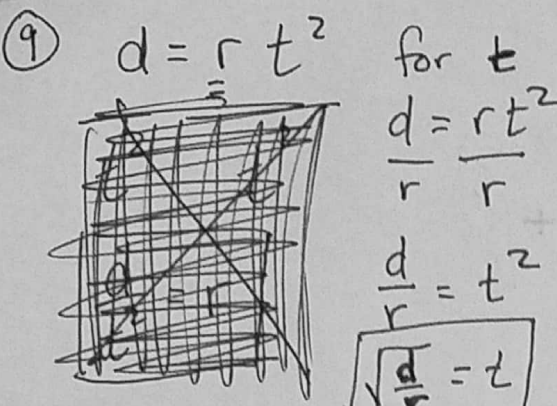 9 d = r t² for t
d/r = rt²/r
d/r = t²
√(d/r) = t